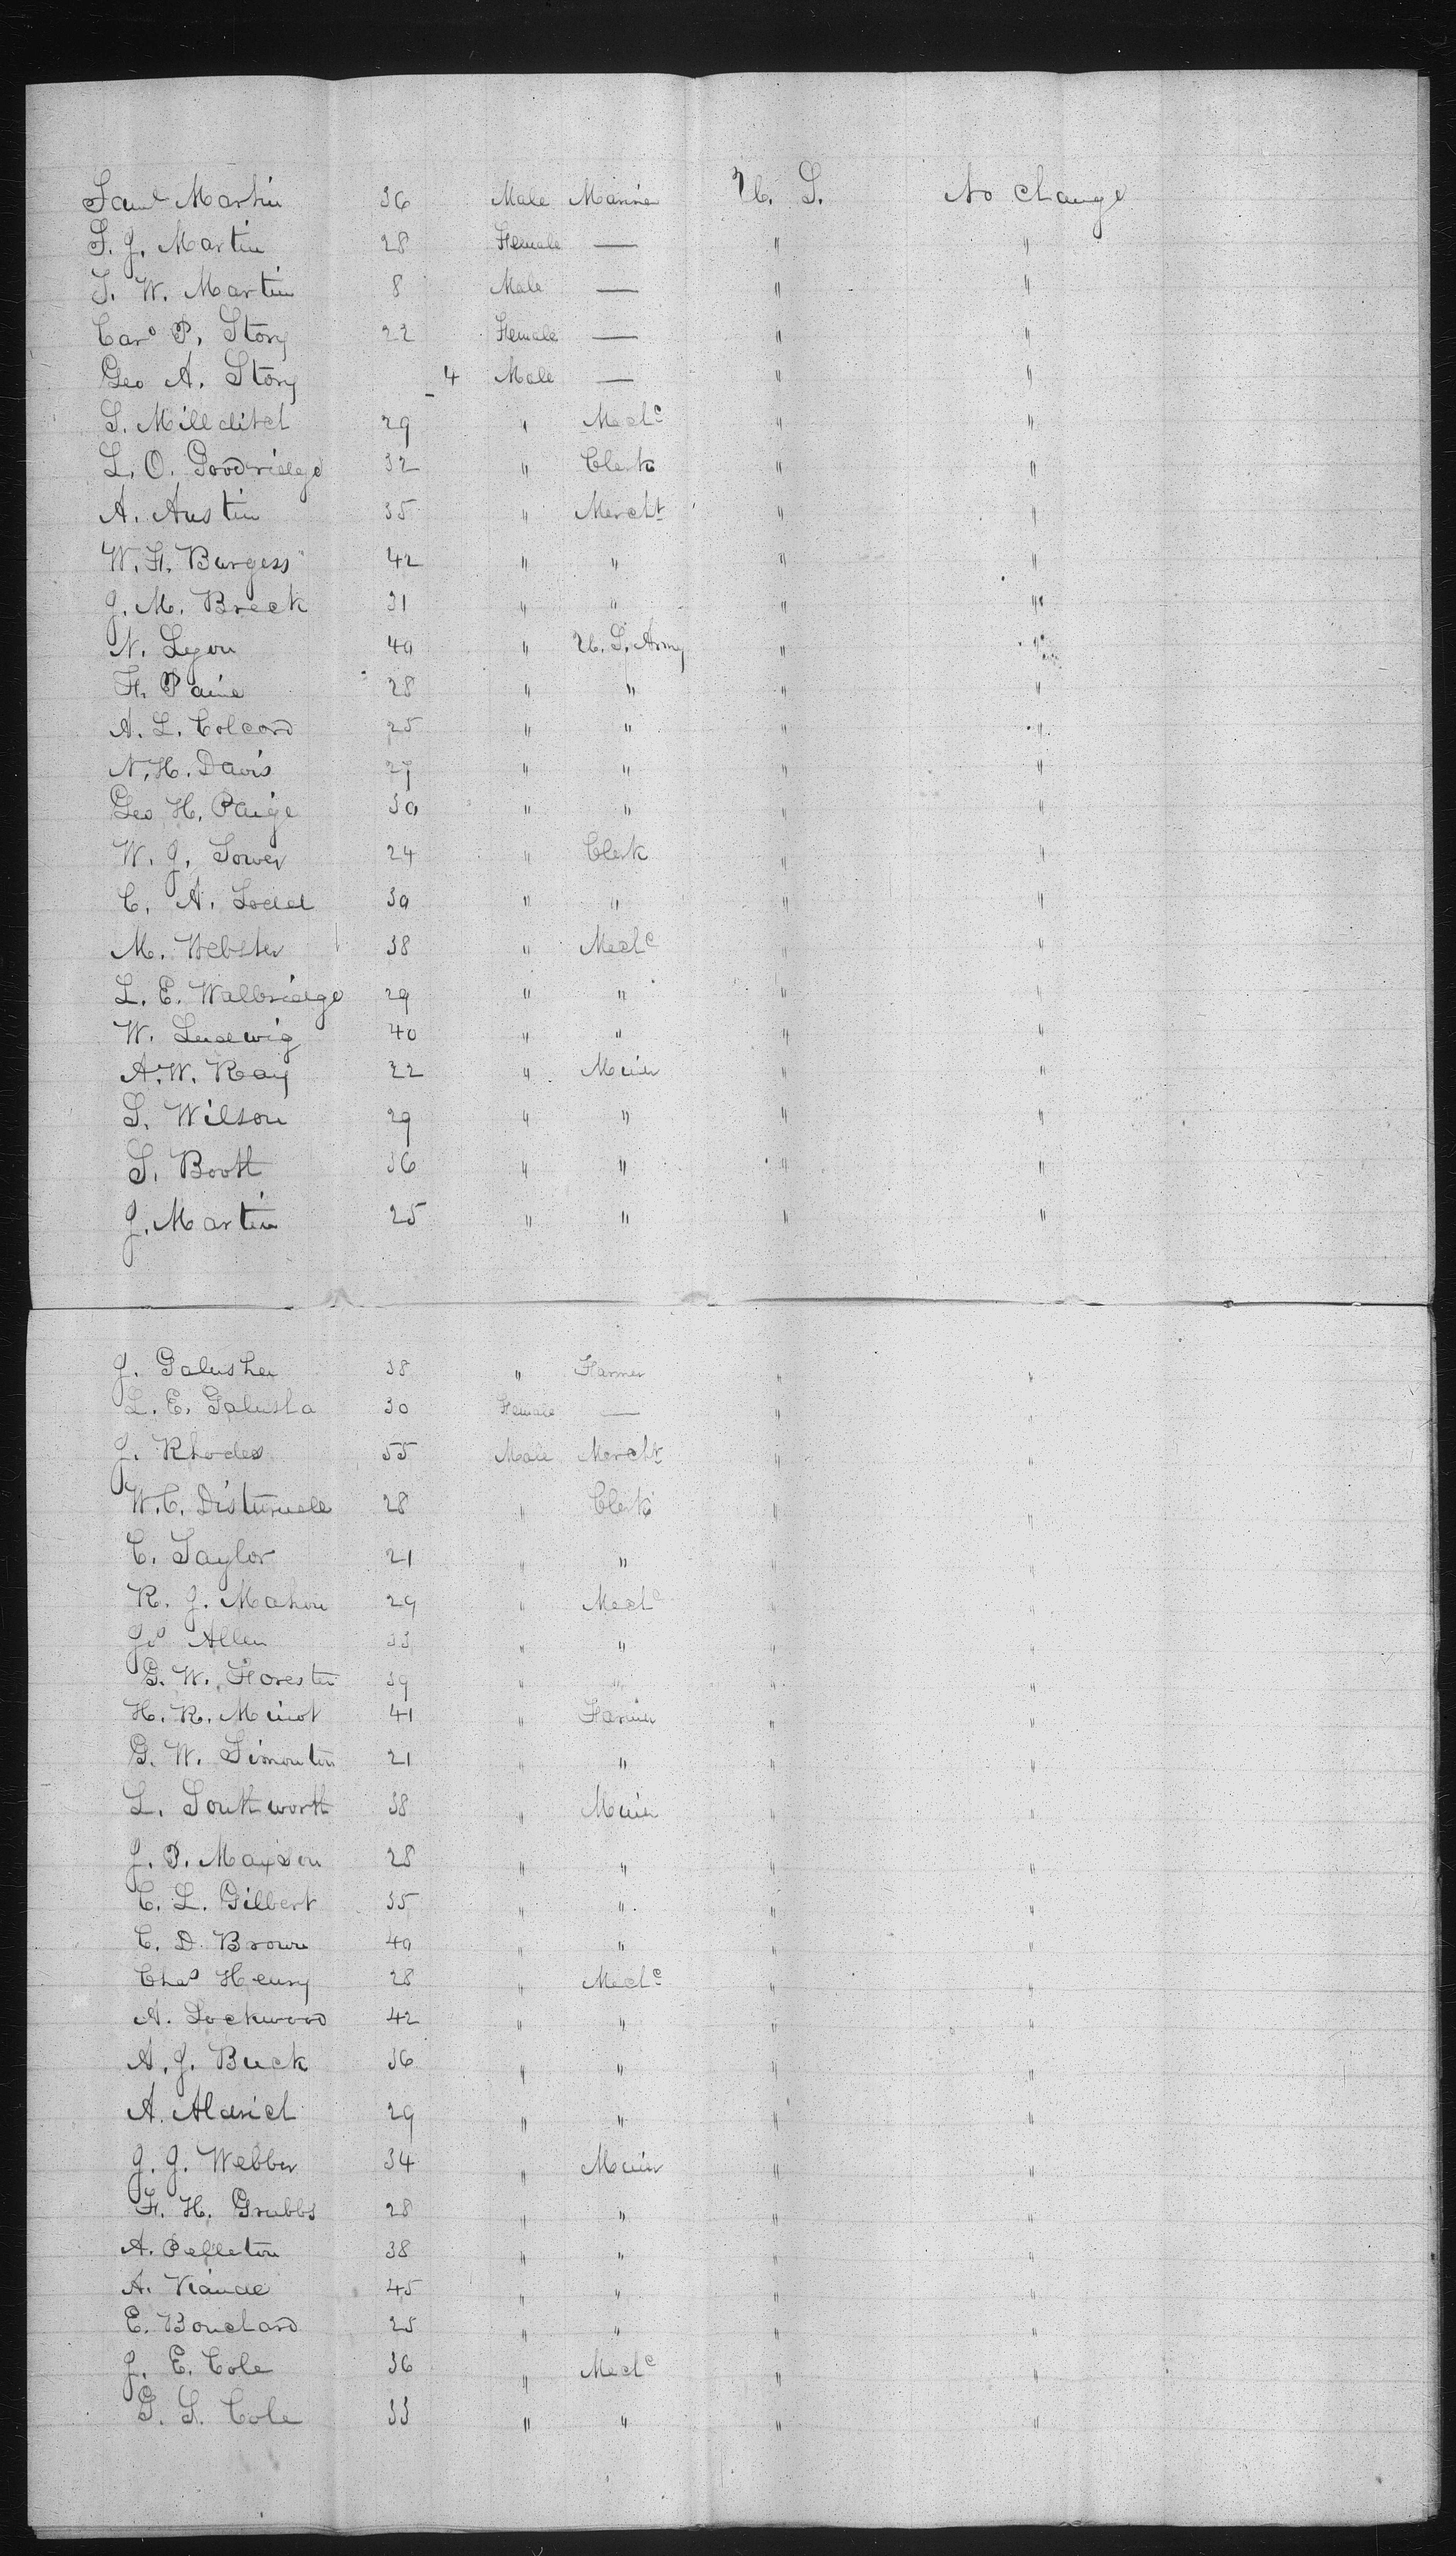 Saml Martin 36 Male Marine U. S. No change
S. J. Martin 28 Female — " "
S. W. Martin 8 Male — " "
Caro P. Story 22 Female — " "
Geo A. Story 4 Male — " "
S. Millditch 29 " Mechc " "
L. O. Goodridge 32 " Clerk " "
A. Austin 35 " Mercht " "
W. F. Burgess 42 " " " "
J. M. Breck 31 " " " "
N. Lyon 40 " U. S. Army " "
F. Paine 28 " " " "
A. L. Colcord 25 " " " "
N. H. Davis 27 " " " "
Geo H. Paige 30 " " " "
W. J. Sower 24 " Clerk " "
C. A. Ladd 30 " " " "
M. Webster 38 " Mechc " "
L. E. Walbridge 29 " " " "
W. Ludwig 40 " " " "
A. W. Ray 22 " Miner " "
S. Wilson 29 " " " "
S. Booth 36 " " " "
J. Martin 25 " " " "
J. Galusha 38 " Farmer " "
L. E. Galusha 30 Female — " "
J. Rhodes 55 Male Mercht " "
W. C. Disturnell 28 " Clerk " "
C. Taylor 21 " " " "
R. J. Mahon 29 " Mechc " "
Jos Allen 33 " " " "
G. W. Forester 39 " " " "
H. R. Minot 41 " Farmer " "
G. W. Simonton 21 " " " "
L. Southworth 38 " Miner " "
J. P. Maxson 28 " " " "
C. L. Gilbert 35 " " " "
C. D. Brown 40 " " " "
Chas Henry 28 " Mechc " "
A. Lockwood 42 " " " "
A. J. Buck 36 " " " "
A. Aldrich 29 " " " "
J. J. Webber 34 " Miner " "
F. H. Grubbs 28 " " " "
A. Peffleton 38 " " " "
A. Viande 45 " " " "
E. Bouchard 25 " " " "
J. E. Cole 36 " Mechc " "
G. S. Cole 33 " " " "